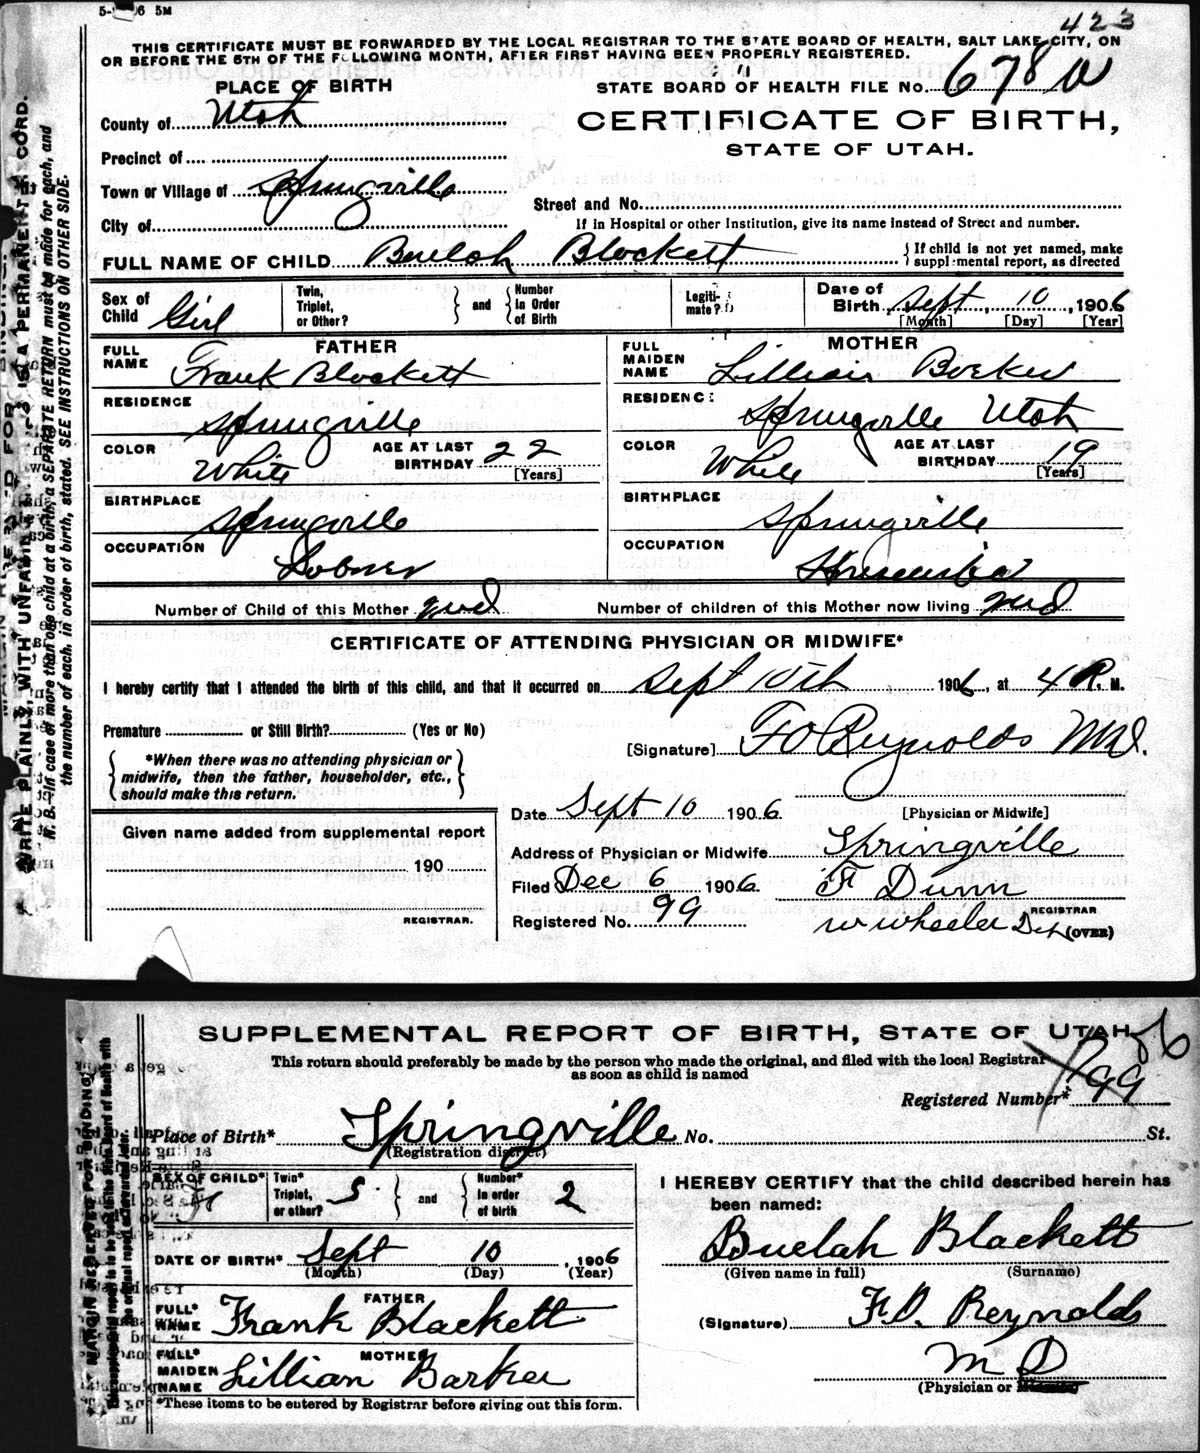 423
THIS CERTIFICATE MUST BE FORWARDED BY THE LOCAL REGISTRAR TO THE STATE BOARD OF HEALTH, SALT LAKE CITY, ON
OR BEFORE THE 5TH OF THE FOLLOWING MONTH, AFTER FIRST HAVING BEEN PROPERLY REGISTERED.
PLACE OF BIRTH
STATE BOARD OF HEALTH FILE No. 678
County of Utah
CERTIFICATE OF BIRTH,
STATE OF UTAH.
Precinct of
Town or Village of Springville
Street and No.
City of
If in Hospital or other Institution, give its name instead of Street and number.
FULL NAME OF CHILD Buelah Blackett
If child is not yet named, make
supplemental report, as directed
Sex of Child Girl
Twin, Triplet, or Other? and Number in Order of Birth
Legitimate?
Date of Birth Sept 10, 1906
[Month] [Day] [Year]
FATHER
MOTHER
FULL NAME Frank Blackett
FULL MAIDEN NAME Lillian Barker
RESIDENCE Springville
RESIDENCE Springville Utah
COLOR White AGE AT LAST BIRTHDAY 22 [Years]
COLOR White AGE AT LAST BIRTHDAY 19 [Years]
BIRTHPLACE Springville
BIRTHPLACE Springville
OCCUPATION Laborer
OCCUPATION
Number of Child of this Mother 2nd Number of children of this Mother now living 2nd
CERTIFICATE OF ATTENDING PHYSICIAN OR MIDWIFE*
I hereby certify that I attended the birth of this child, and that it occurred on Sept 10th 1906, at 4 P. M.
Premature or Still Birth? (Yes or No)
[Signature] F O Reynolds M.D.
*When there was no attending physician or
midwife, then the father, householder, etc.,
should make this return.
Date Sept 10 1906 [Physician or Midwife]
Given name added from supplemental report
190
REGISTRAR.
Address of Physician or Midwife Springville
Filed Dec 6 1906 F Dunn
REGISTRAR
Registered No. 99 W Wheeler Dep
(OVER)
WRITE PLAINLY, WITH UNFADING INK—THIS IS A PERMANENT RECORD.
N. B.—In case of more than one child at a birth, a SEPARATE RETURN must be made for each, and
the number of each, in order of birth, stated. SEE INSTRUCTIONS ON OTHER SIDE.
SUPPLEMENTAL REPORT OF BIRTH, STATE OF UTAH
This return should preferably be made by the person who made the original, and filed with the local Registrar
as soon as child is named
Registered Number* 99
Place of Birth* Springville No. St.
(Registration district)
SEX OF CHILD*
Twin* Triplet, or other? S and Number* in order of birth 2
I HEREBY CERTIFY that the child described herein has
been named:
Buelah Blackett
(Given name in full) (Surname)
DATE OF BIRTH* Sept 10, 1906
(Month) (Day) (Year)
FATHER
FULL* NAME Frank Blackett
(Signature) F.O. Reynolds
M D
(Physician or Midwife)
MOTHER
FULL* MAIDEN NAME Lillian Barker
*These items to be entered by Registrar before giving out this form.
MARGIN RESERVED FOR BINDING